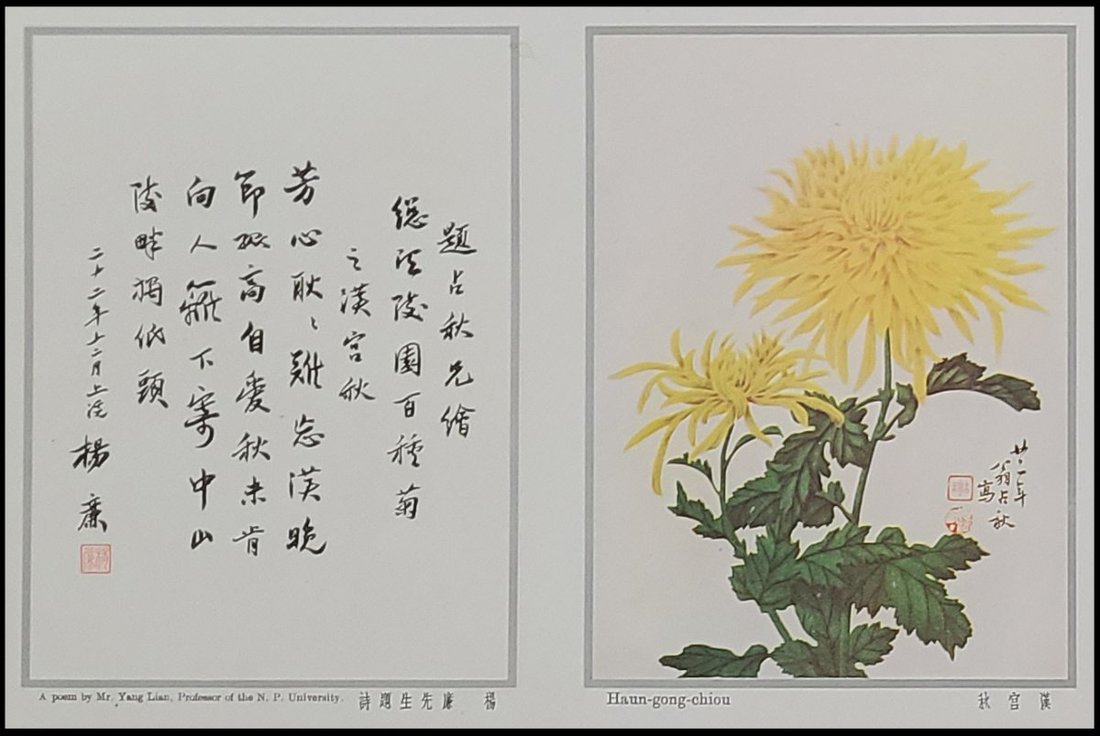 題占秋兄繪
總理陵園百種菊
之漢宮秋
芳心耿〻難忘漢晚
節孤高自愛秋未肯
向人籬下寄中山
陵畔獨低頭
二十二年十二月上浣 楊廉
A poem by Mr. Yang Lian, Professor of the N. P. University.
楊廉先生題詩
廿一年
翁占秋
寫
Haun-gong-chiou
漢宮秋